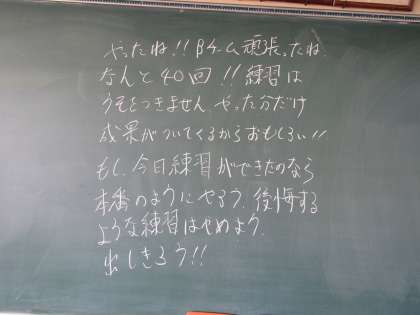 やったね!! Bチーム頑張ったね.
なんと40回!! 練習は
うそをつきません. やった分だけ
成果がついてくるからおもしろい!!
もし、今日練習ができたのなら
本番のようにやろう. 後悔する
ような練習はやめよう.
出しきろう!!